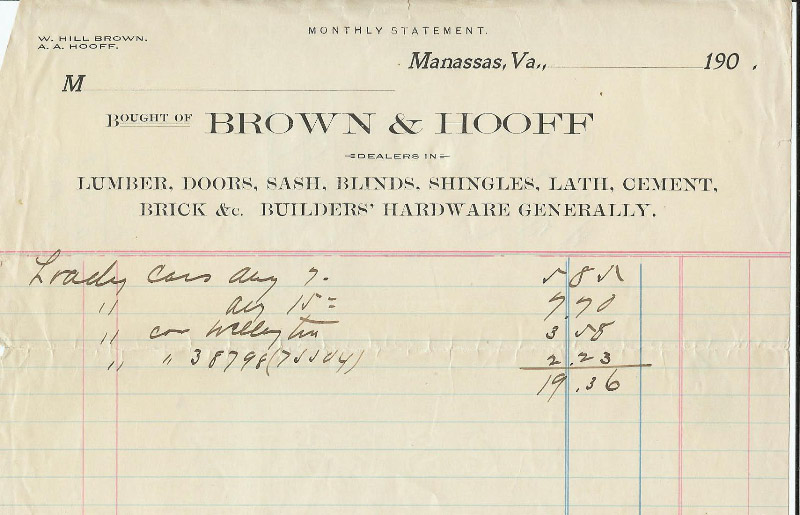 MONTHLY STATEMENT.
W. HILL BROWN.
A. A. HOOFF.
Manassas, Va., 190 .
M
BOUGHT OF BROWN & HOOFF
DEALERS IN
LUMBER, DOORS, SASH, BLINDS, SHINGLES, LATH, CEMENT,
BRICK &c. BUILDERS' HARDWARE GENERALLY.
Loadg cars Aug 7. 5 85
" Aug 15 = 7.70
" car Wellington 3 58
" " 38798 2.23
19.36